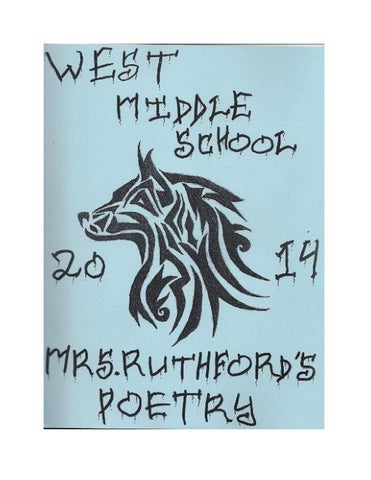 WEST
MIDDLE
SCHOOL
20 14
MRS. RUTHFORD'S
POETRY